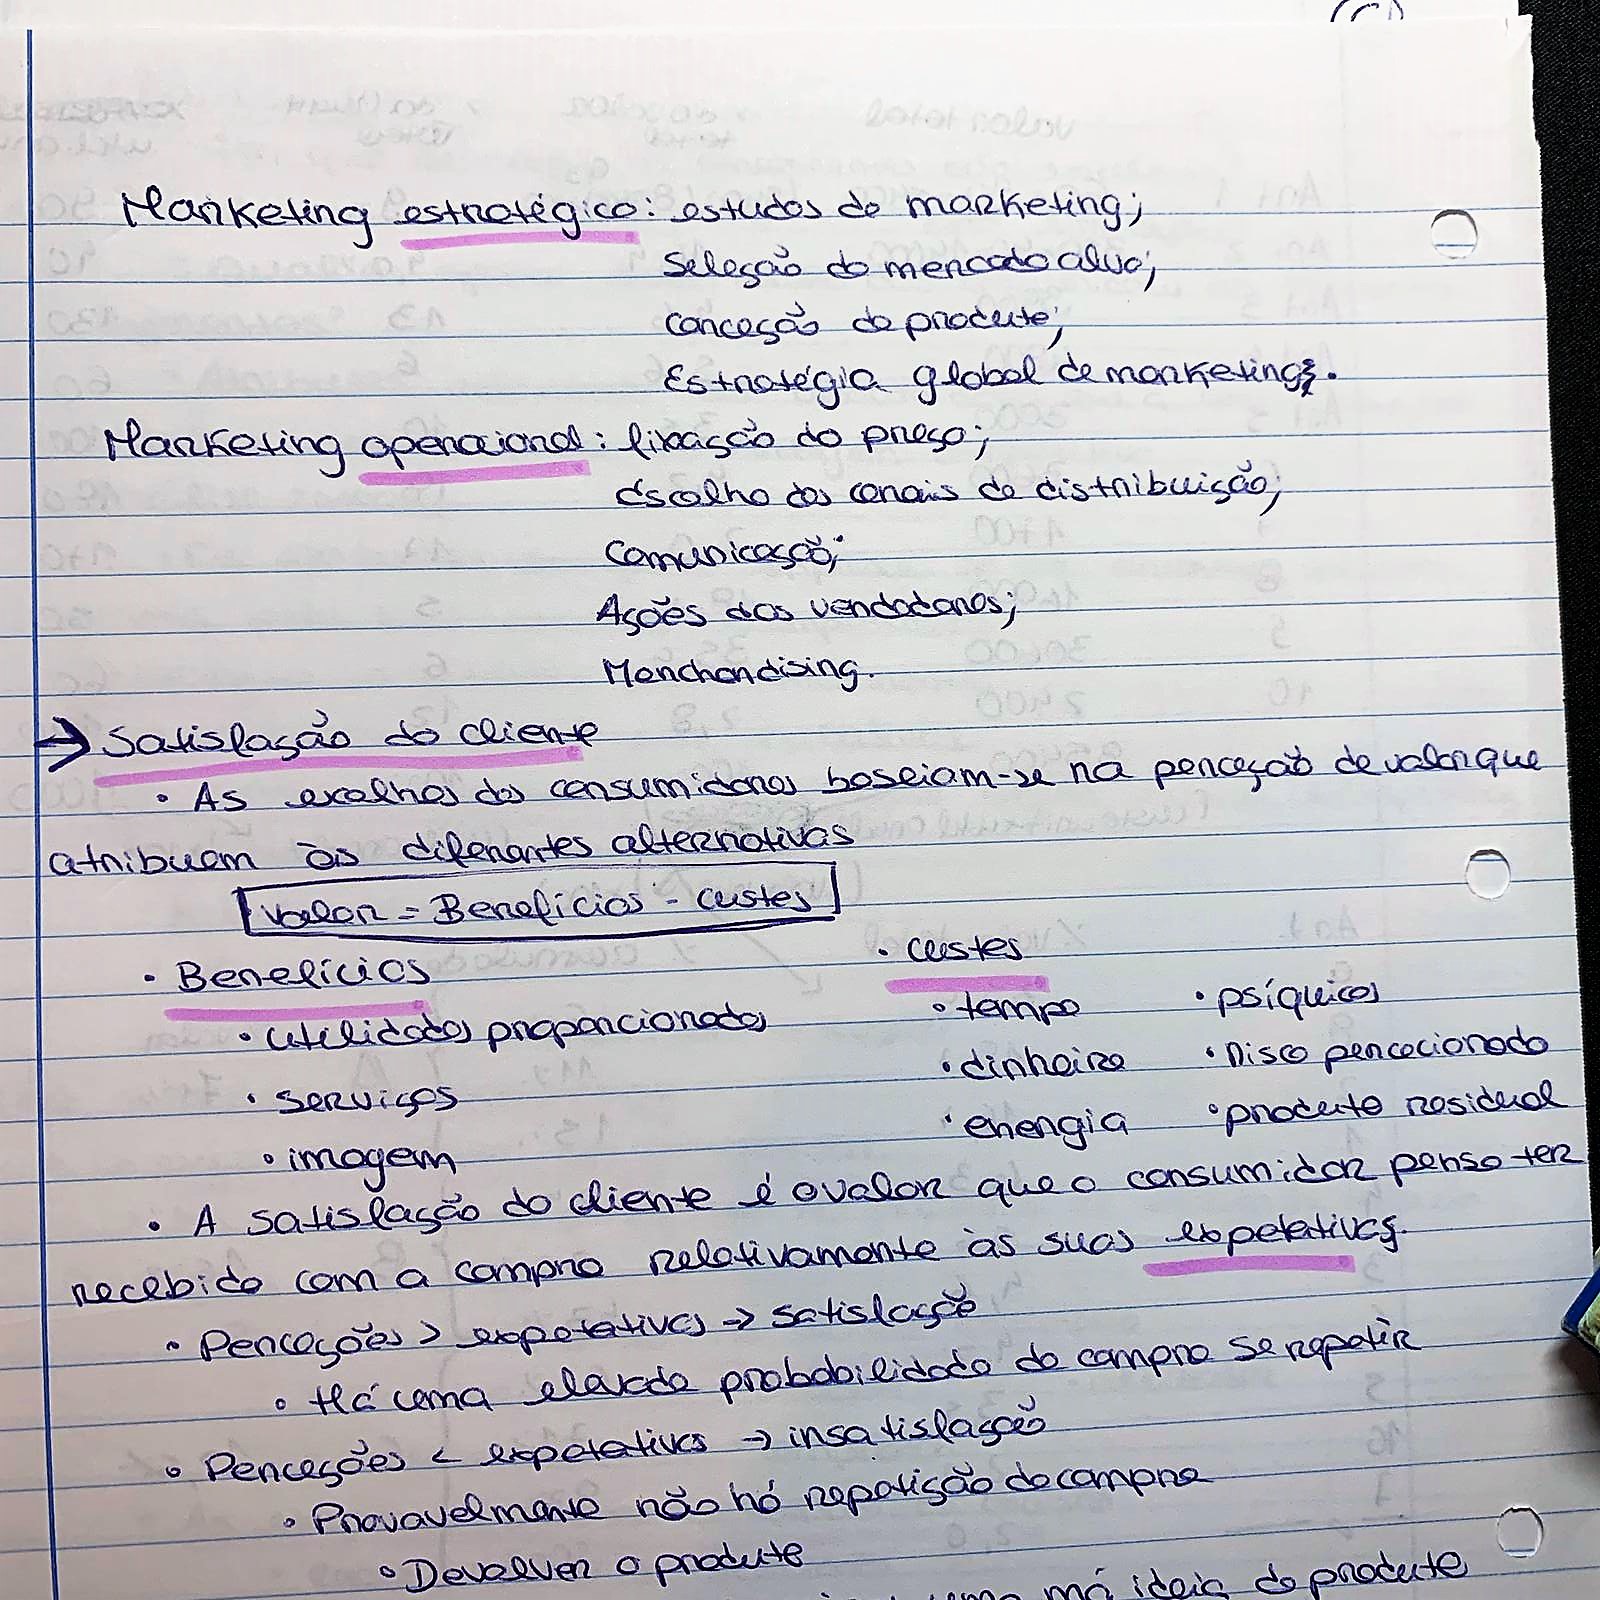 Marketing estratégico: estudos de marketing;
Seleção do mercado alvo;
Conceção do produto;
Estratégia global de marketing.
Marketing operacional: fixação do preço;
Escolha dos canais de distribuição;
Comunicação;
Ações dos vendedores;
Merchandising.
→ Satisfação do cliente
• As escolhas dos consumidores baseiam-se na perceção de valor que
atribuem às diferentes alternativas
Valor = Benefícios - custos
• Benefícios • custos
• utilidades proporcionadas • tempo • psíquicos
• dinheiro • risco percecionado
• serviços
• energia • produto residual
• imagem
• A satisfação do cliente é o valor que o consumidor pensa ter
recebido com a compra relativamente às suas expetativas.
• Perceções > expetativas → satisfação
• Há uma elevada probabilidade da compra se repetir
• Perceções < expetativas → insatisfação
• Provavelmente não há repetição da compra
• Devolver o produto
uma má ideia do produto